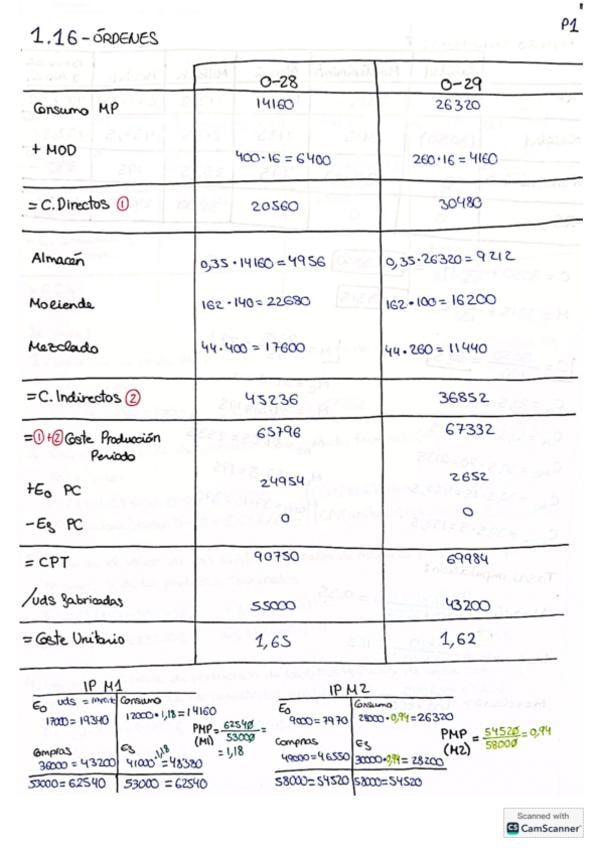 P1
1.16 - ÓRDENES
O-28 O-29
Consumo MP 14160 26320
+ MOD 400·16 = 6400 260·16 = 4160
= C. Directos ① 20560 30480
Almacén 0,35·14160 = 4956 0,35·26320 = 9212
Molienda 162·140 = 22680 162·100 = 16200
Mezclado 44·400 = 17600 44·260 = 11440
= C. Indirectos ② 45236 36852
= ①+② Coste Producción Periodo 65796 67332
+ E₀ PC 24954 2652
- E₃ PC 0 0
= CPT 90750 69984
/uds fabricadas 55000 43200
= Coste Unitario 1,65 1,62
IP M1
E₀ uds = Consumo
17000 = 19340 12000·1,18 = 14160
Compras E₃
36000 = 43200 41000·1,18 = 48380
53000 = 62540 53000 = 62540
PMP (M1) = 62540 / 53000 = 1,18
IP M2
E₀ Consumo
9000 = 7970 28000·0,94 = 26320
Compras E₃
49000 = 46550 30000·0,94 = 28200
58000 = 54520 58000 = 54520
PMP (M2) = 54520 / 58000 = 0,94
Scanned with
CS CamScanner